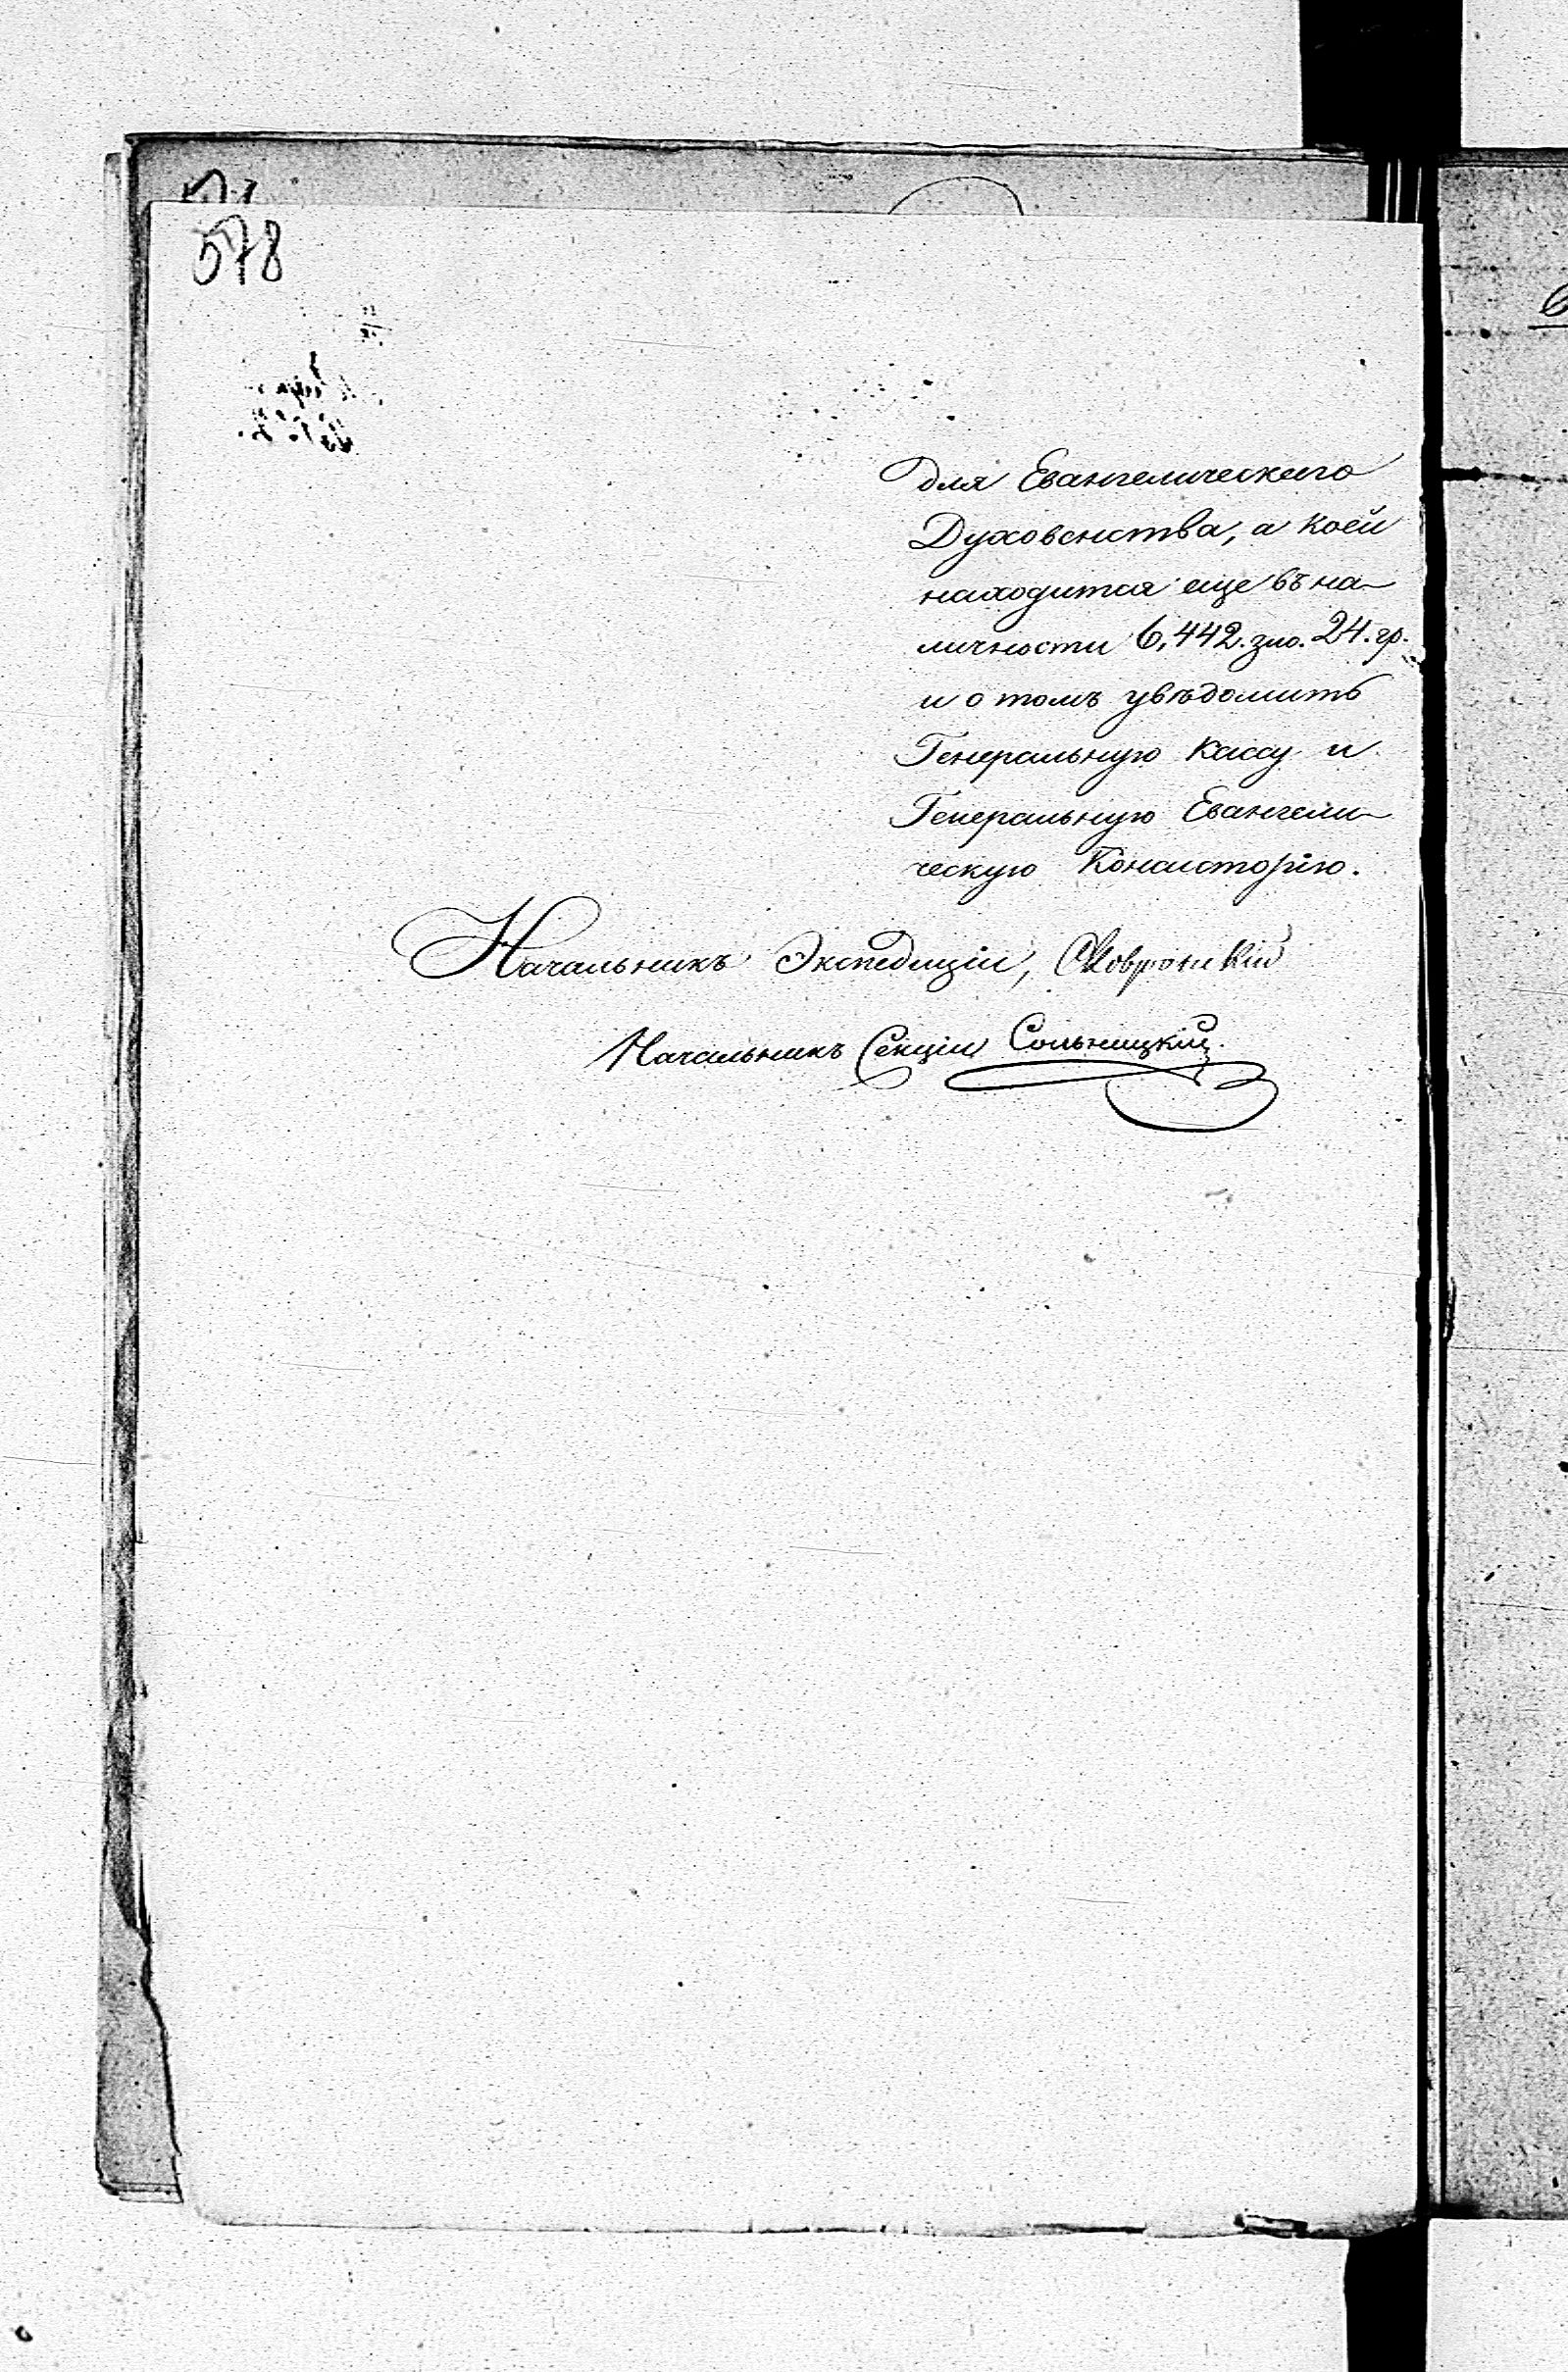 578
для Евангелическаго
Духовенства, а коей
находится еще въ на-
личности 6,442. зло. 24. гр.
и о томъ увѣдомить
Генеральную Кассу и
Генеральную Евангели-
ческую Консисторію.
Начальникъ Экспедиціи, Сковронскій
Начальникъ Секціи Сольницкій.